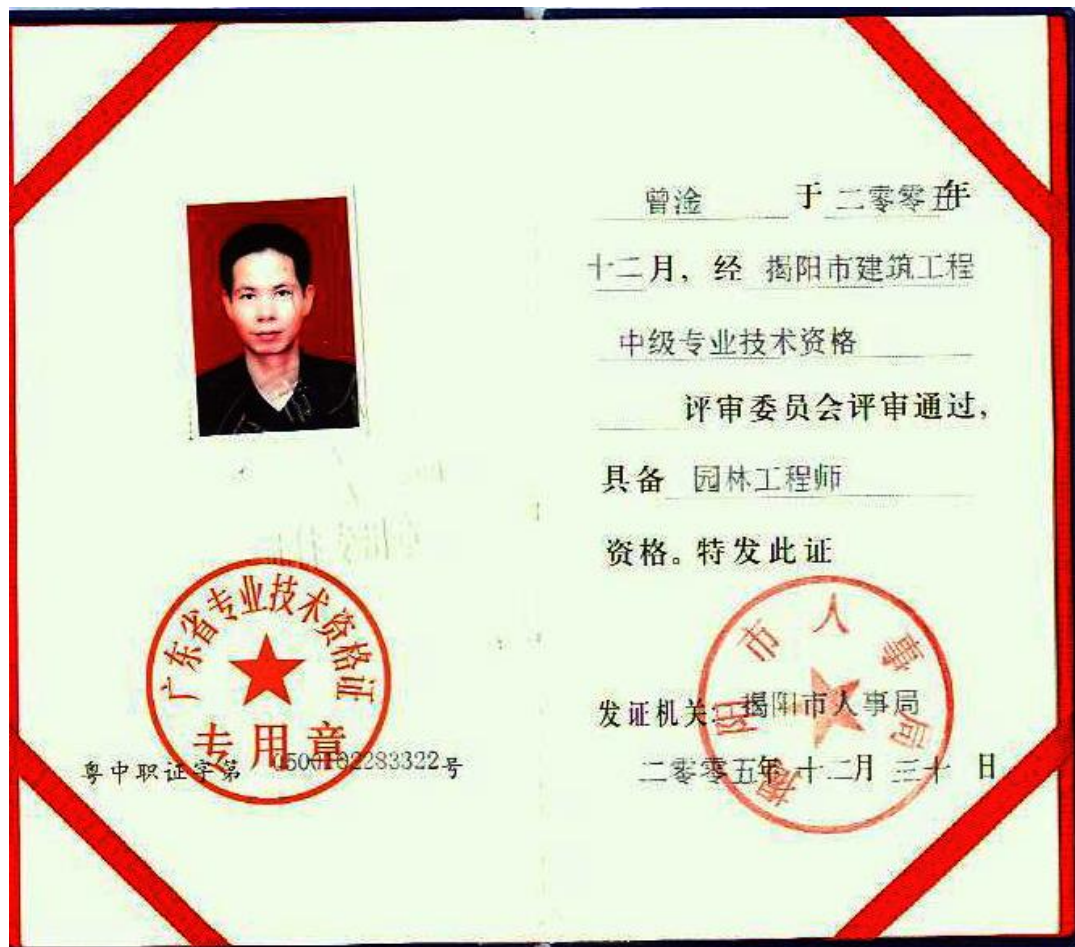 广东省专业技术资格证
专用章
粤中职证字第 0500102283322号
曾淦 于 二零零五年
十二月，经 揭阳市建筑工程
中级专业技术资格
评审委员会评审通过，
具备 园林工程师
资格。特发此证
揭阳市人事局
发证机关：揭阳市人事局
二零零五年十二月三十日